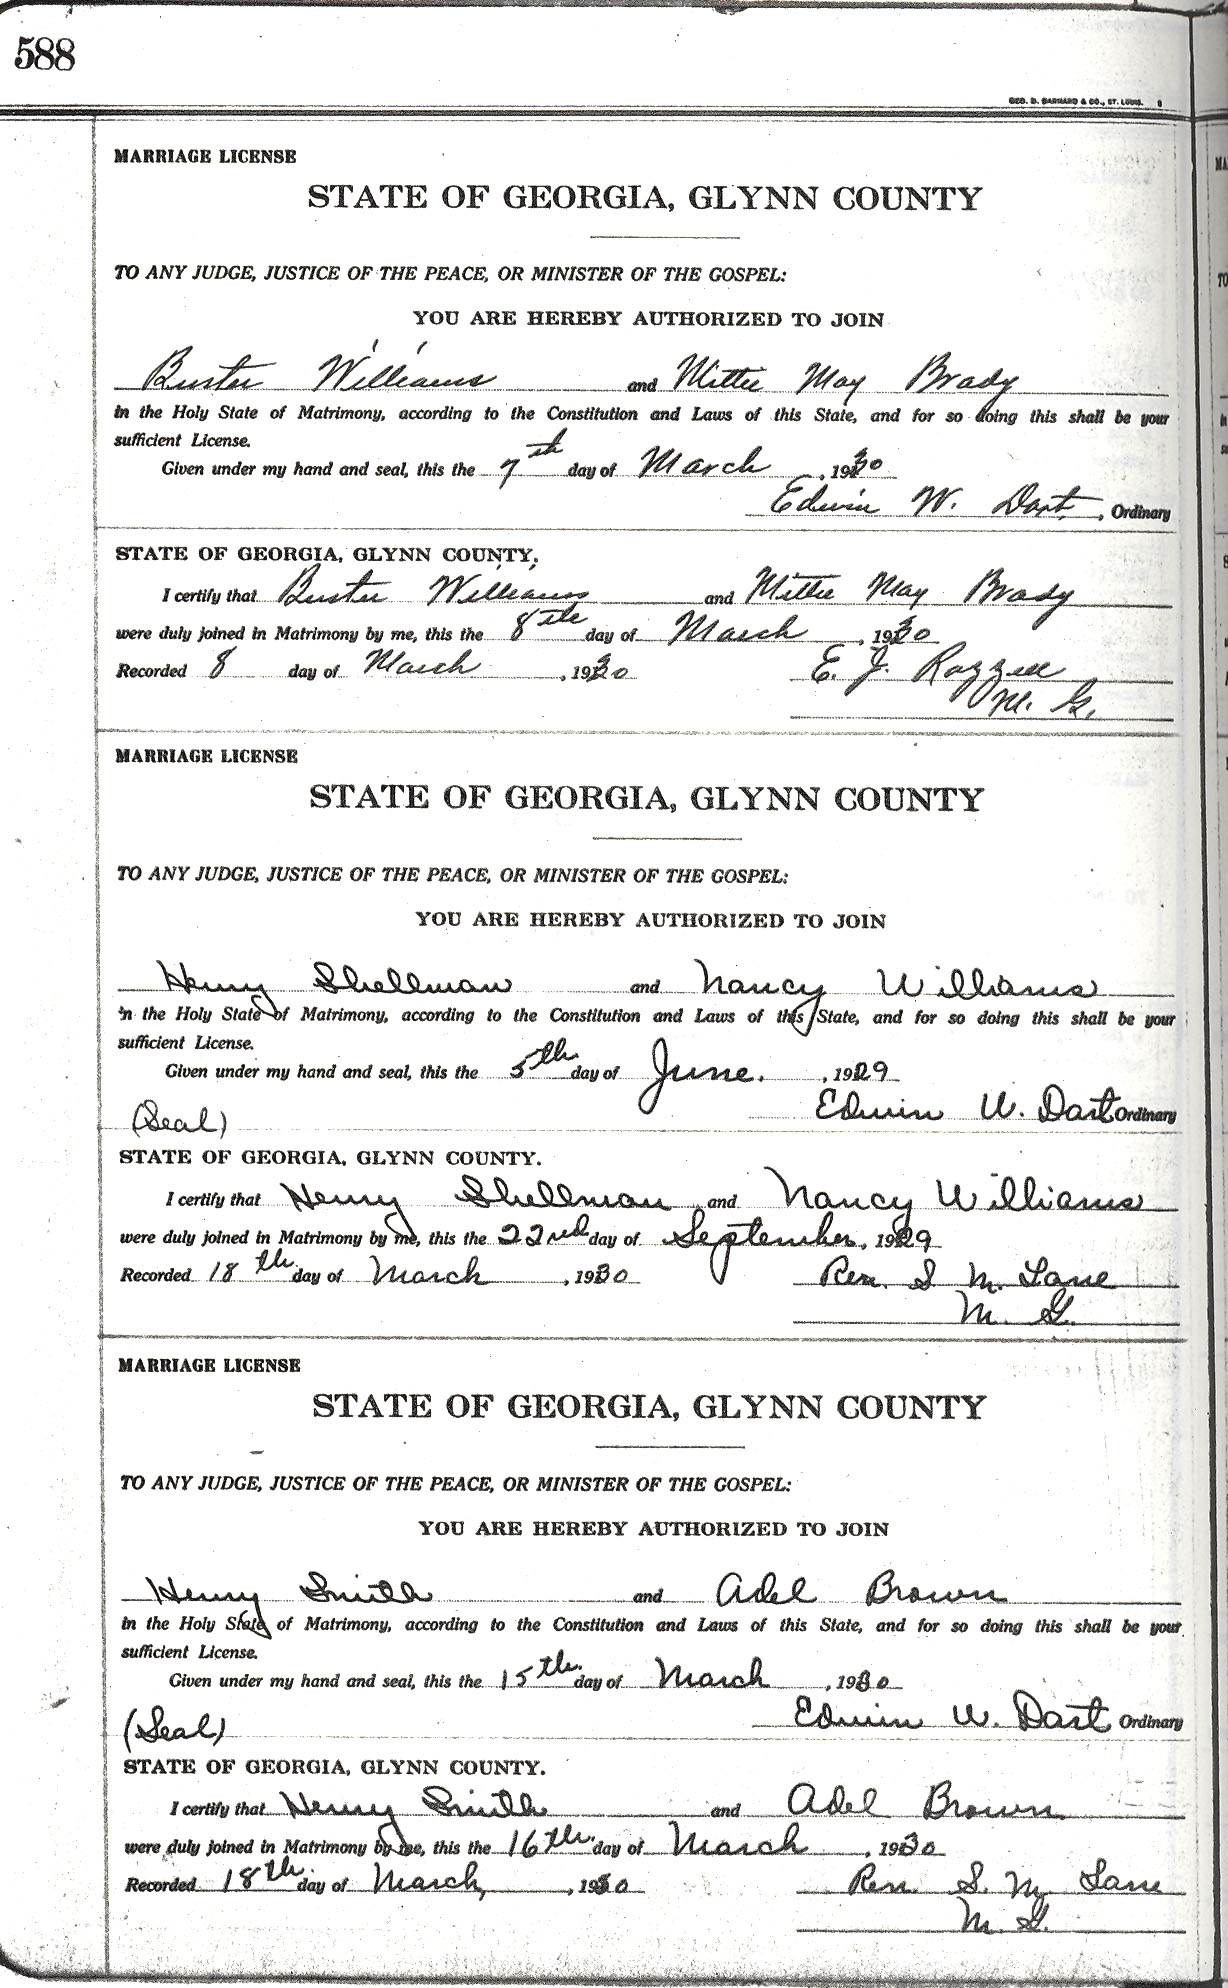 588
GEO. D. BARNARD & CO., ST. LOUIS.
MARRIAGE LICENSE
STATE OF GEORGIA, GLYNN COUNTY
TO ANY JUDGE, JUSTICE OF THE PEACE, OR MINISTER OF THE GOSPEL:
YOU ARE HEREBY AUTHORIZED TO JOIN
Buster Williams and Mittie May Brady
in the Holy State of Matrimony, according to the Constitution and Laws of this State, and for so doing this shall be your
sufficient License.
Given under my hand and seal, this the 7th day of March, 1930
Edwin W. Dart, Ordinary
STATE OF GEORGIA, GLYNN COUNTY.
I certify that Buster Williams and Mittie May Brady
were duly joined in Matrimony by me, this the 8th day of March, 1930
Recorded 8 day of March, 1930 E. J. Razzell
M. G.
MARRIAGE LICENSE
STATE OF GEORGIA, GLYNN COUNTY
TO ANY JUDGE, JUSTICE OF THE PEACE, OR MINISTER OF THE GOSPEL:
YOU ARE HEREBY AUTHORIZED TO JOIN
Henry Shellman and Nancy Williams
in the Holy State of Matrimony, according to the Constitution and Laws of this State, and for so doing this shall be your
sufficient License.
Given under my hand and seal, this the 5th day of June, 1929
(Seal) Edwin W. Dart Ordinary
STATE OF GEORGIA, GLYNN COUNTY.
I certify that Henry Shellman and Nancy Williams
were duly joined in Matrimony by me, this the 22nd day of September, 1929
Recorded 18th day of March, 1930 Rev. S M. Lane
M. G.
MARRIAGE LICENSE
STATE OF GEORGIA, GLYNN COUNTY
TO ANY JUDGE, JUSTICE OF THE PEACE, OR MINISTER OF THE GOSPEL:
YOU ARE HEREBY AUTHORIZED TO JOIN
Henry Smith and Adel Brown
in the Holy State of Matrimony, according to the Constitution and Laws of this State, and for so doing this shall be your
sufficient License.
Given under my hand and seal, this the 15th day of March, 1930
(Seal) Edwin W. Dart Ordinary
STATE OF GEORGIA, GLYNN COUNTY.
I certify that Henry Smith and Adel Brown
were duly joined in Matrimony by me, this the 16th day of March, 1930
Recorded 18th day of March, 1930 Rev. S. M. Lane
M. G.